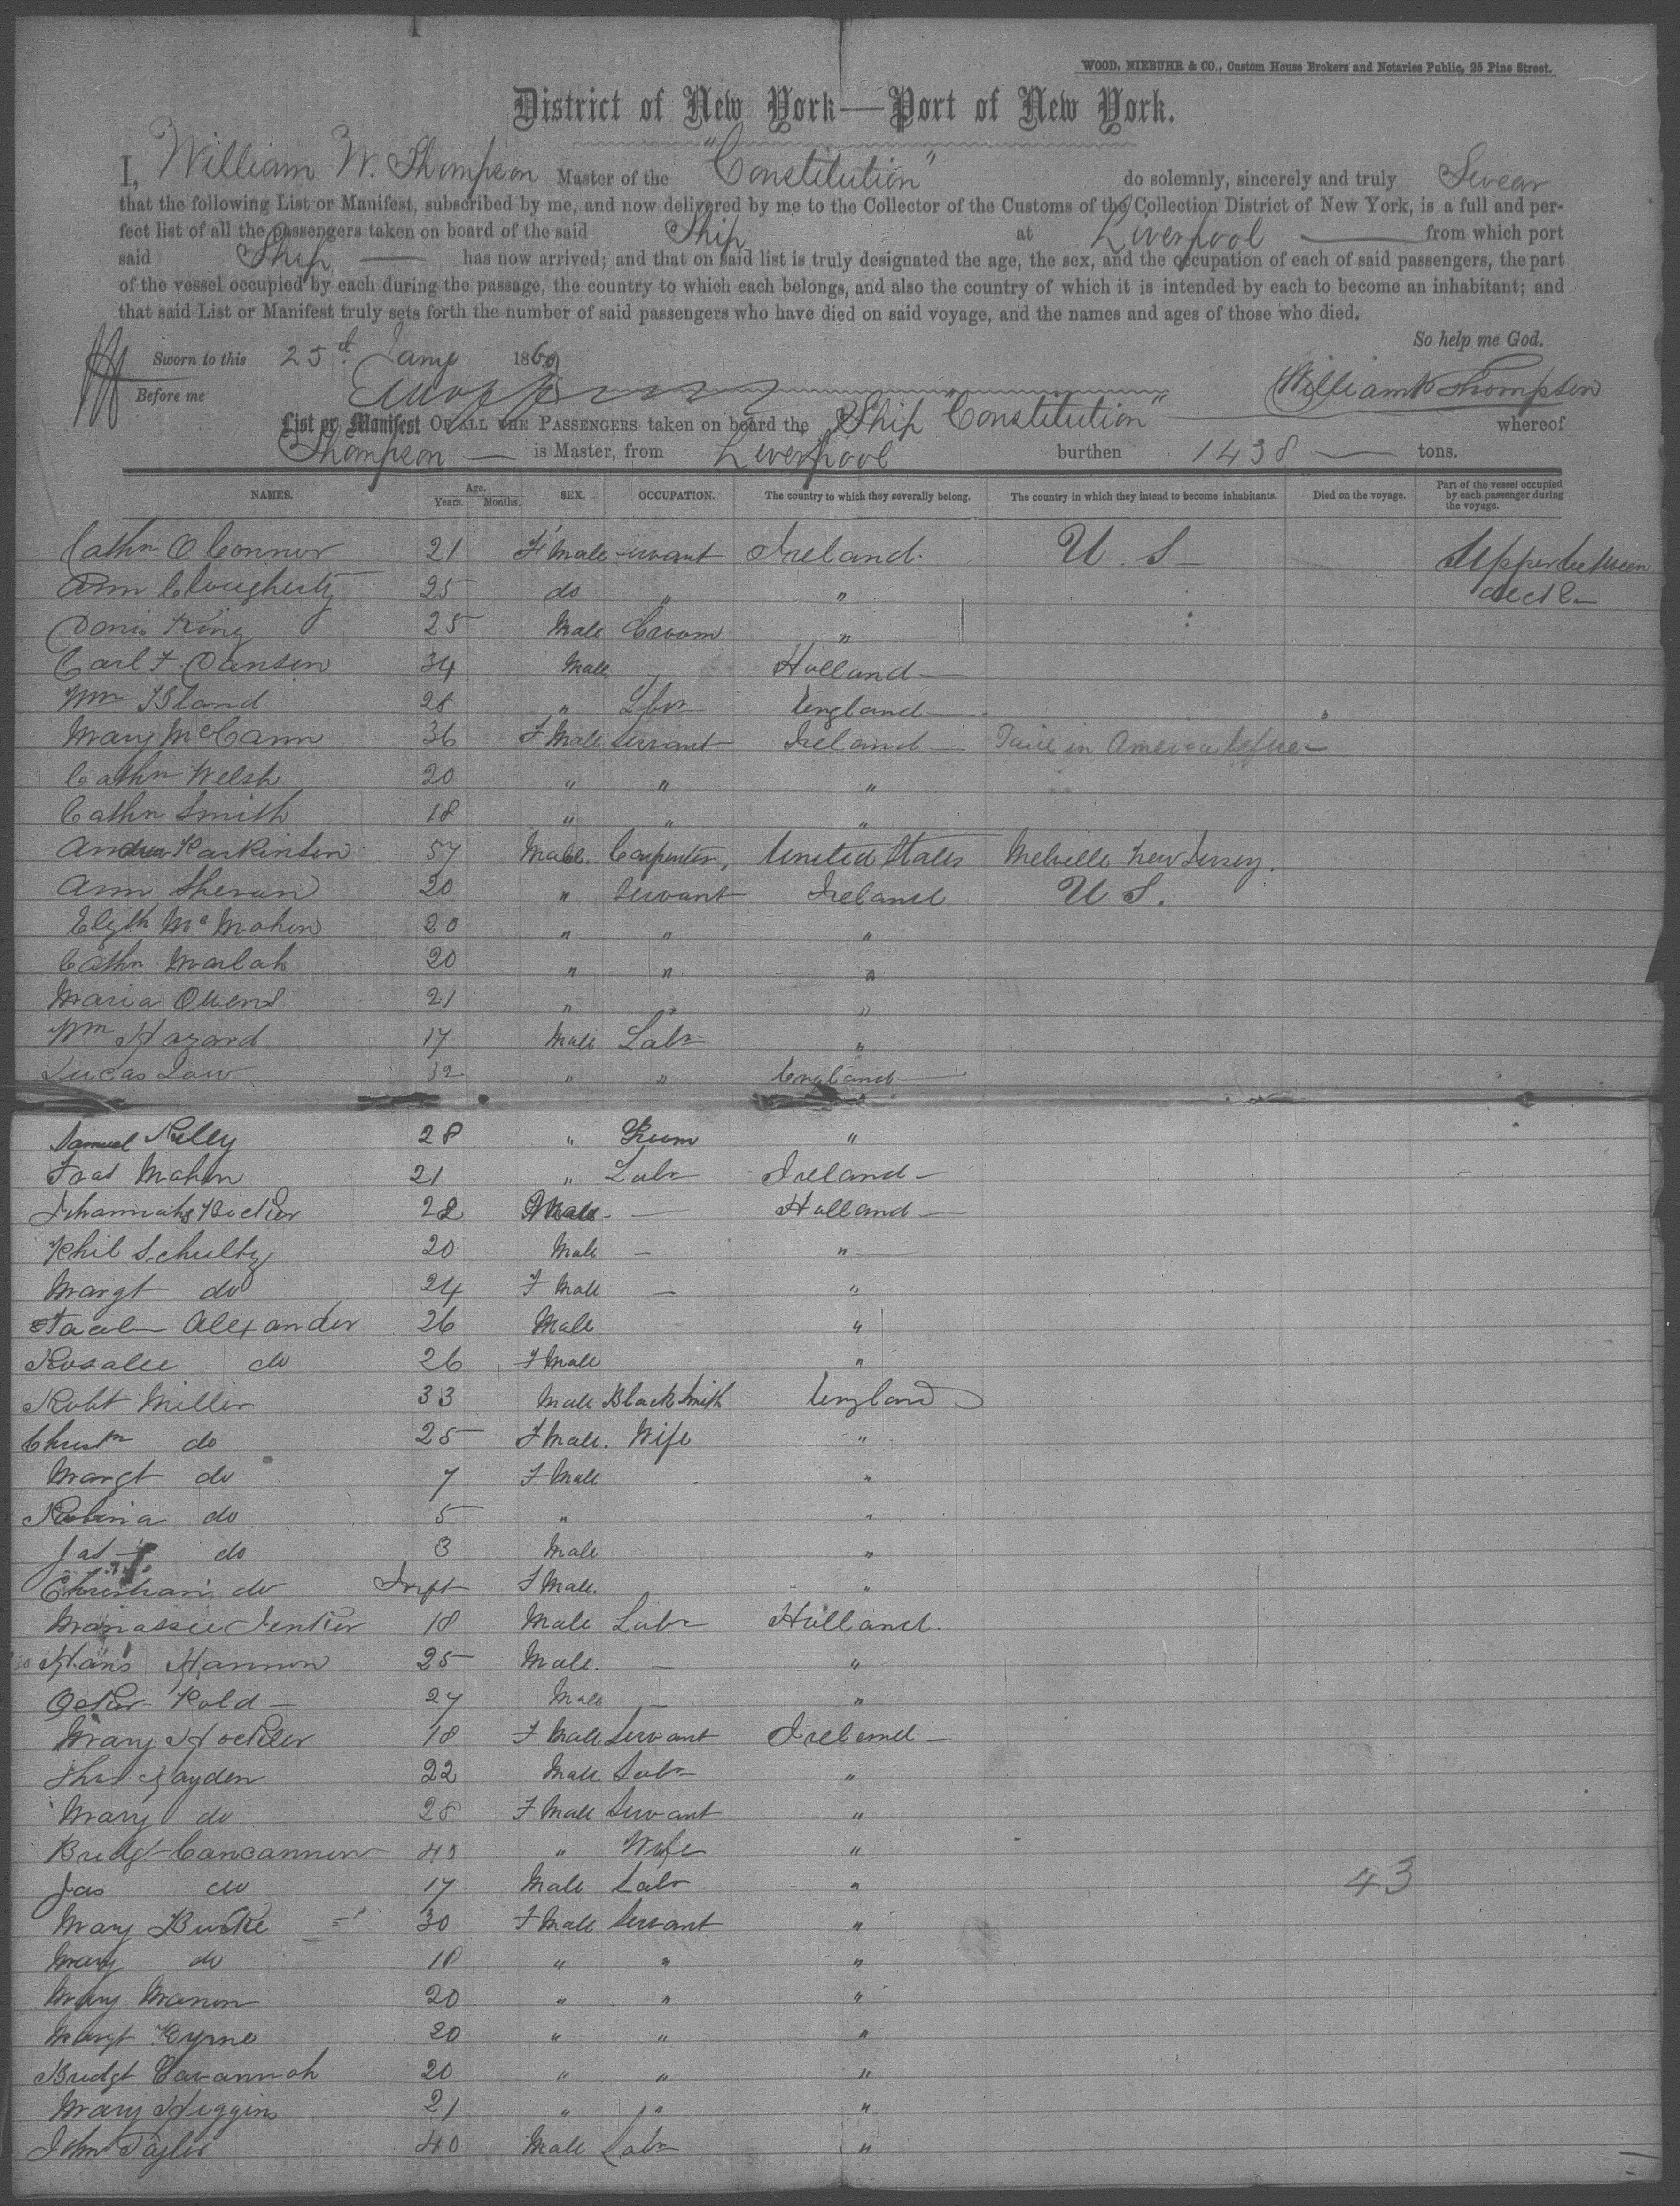 WOOD, NIEBUHR & CO., Custom House Brokers and Notaries Public, 25 Pine Street.
District of New York—Port of New York.
I, William W. Thompson Master of the "Constitution" do solemnly, sincerely and truly Swear
that the following List or Manifest, subscribed by me, and now delivered by me to the Collector of the Customs of the Collection District of New York, is a full and per-
fect list of all the passengers taken on board of the said Ship at Liverpool from which port
said Ship has now arrived; and that on said list is truly designated the age, the sex, and the occupation of each of said passengers, the part
of the vessel occupied by each during the passage, the country to which each belongs, and also the country of which it is intended by each to become an inhabitant; and
that said List or Manifest truly sets forth the number of said passengers who have died on said voyage, and the names and ages of those who died.
So help me God.
Sworn to this 25th Jany 1860
Before me William W Thompson
List or Manifest OF ALL THE PASSENGERS taken on board the Ship "Constitution" whereof
Thompson is Master, from Liverpool burthen 1438 tons.
NAMES. Age. Years. Months. SEX. OCCUPATION. The country to which they severally belong. The country in which they intend to become inhabitants. Died on the voyage. Part of the vessel occupied by each passenger during the voyage.
Cathn O Connor 21 F male servant Ireland U S Upper between
Ann Clougherty 25 do " " deck
Denis King 25 Male Groom "
Carl F. Dansen 34 Male Holland
Wm Bland 28 " Lbr England
Mary McCann 36 F Male Servant Ireland Twice in America before
Cathn Welsh 20 " " "
Cathn Smith 18 " " "
Andrew Parkinson 57 Male. Carpenter, United States Melville New Jersey.
Ann Sheran 20 " Servant Ireland U S.
Elizth McMahon 20 " " "
Cathn 20 " " "
Maria Owens 21 " " "
Wm Hazard 17 Male Labr "
Lucas Law 32 " " England
Samuel Kelly 28 " "
Mahon 21 " Labr Ireland
28 Male Holland
Phil Schultz 20 Male "
Margt do 24 F Male "
Jacob Alexander 26 Male "
Rosalie do 26 F Male "
Robt Miller 33 Male Black Smith England
Christn do 25 F Male. Wife "
Margt do 7 F Male "
Robina do 5 " "
Jas do 3 Male "
Christian do Inft F Male. "
Manassee 18 Male Labr Holland.
Hans Hannon 25 Male. "
27 Male "
Mary 18 F Male Servant Ireland
Thos Hayden 22 Male Labr "
Mary do 28 F Male Servant "
Bridgt Concannon 43 " Wife "
Jas do 17 Male Labr " 43
Mary Burke 30 F Male Servant "
Mary do 18 " " "
Mary Manon 20 " " "
Margt Byrne 20 " " "
Bridgt Cavannah 20 " " "
Mary Higgins 21 " " "
John Taylor 40 Male Labr "